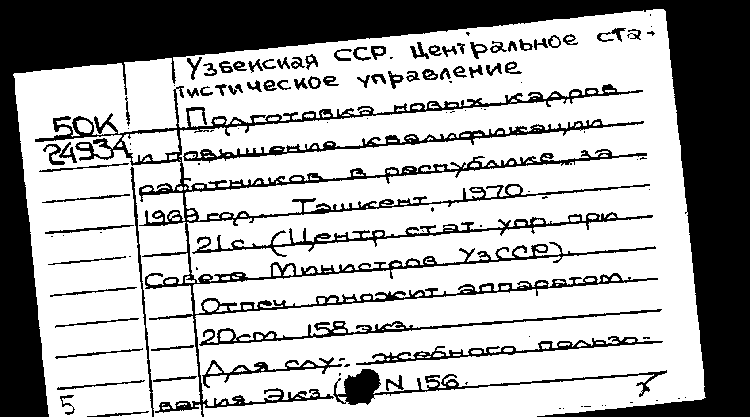 Узбекская ССР. Центральное ста-
тистическое управление
50К
24934
Подготовка новых кадров
и повышение квалификации
работников в республике за
1969 год. Ташкент, 1970.
21 с. (Центр. стат. упр. при
Совете Министров УзССР).
Отпеч. множит. аппаратом.
20 см. 158 экз.
Для слу- жебного пользо-
вания. Экз. ( N 156.
5